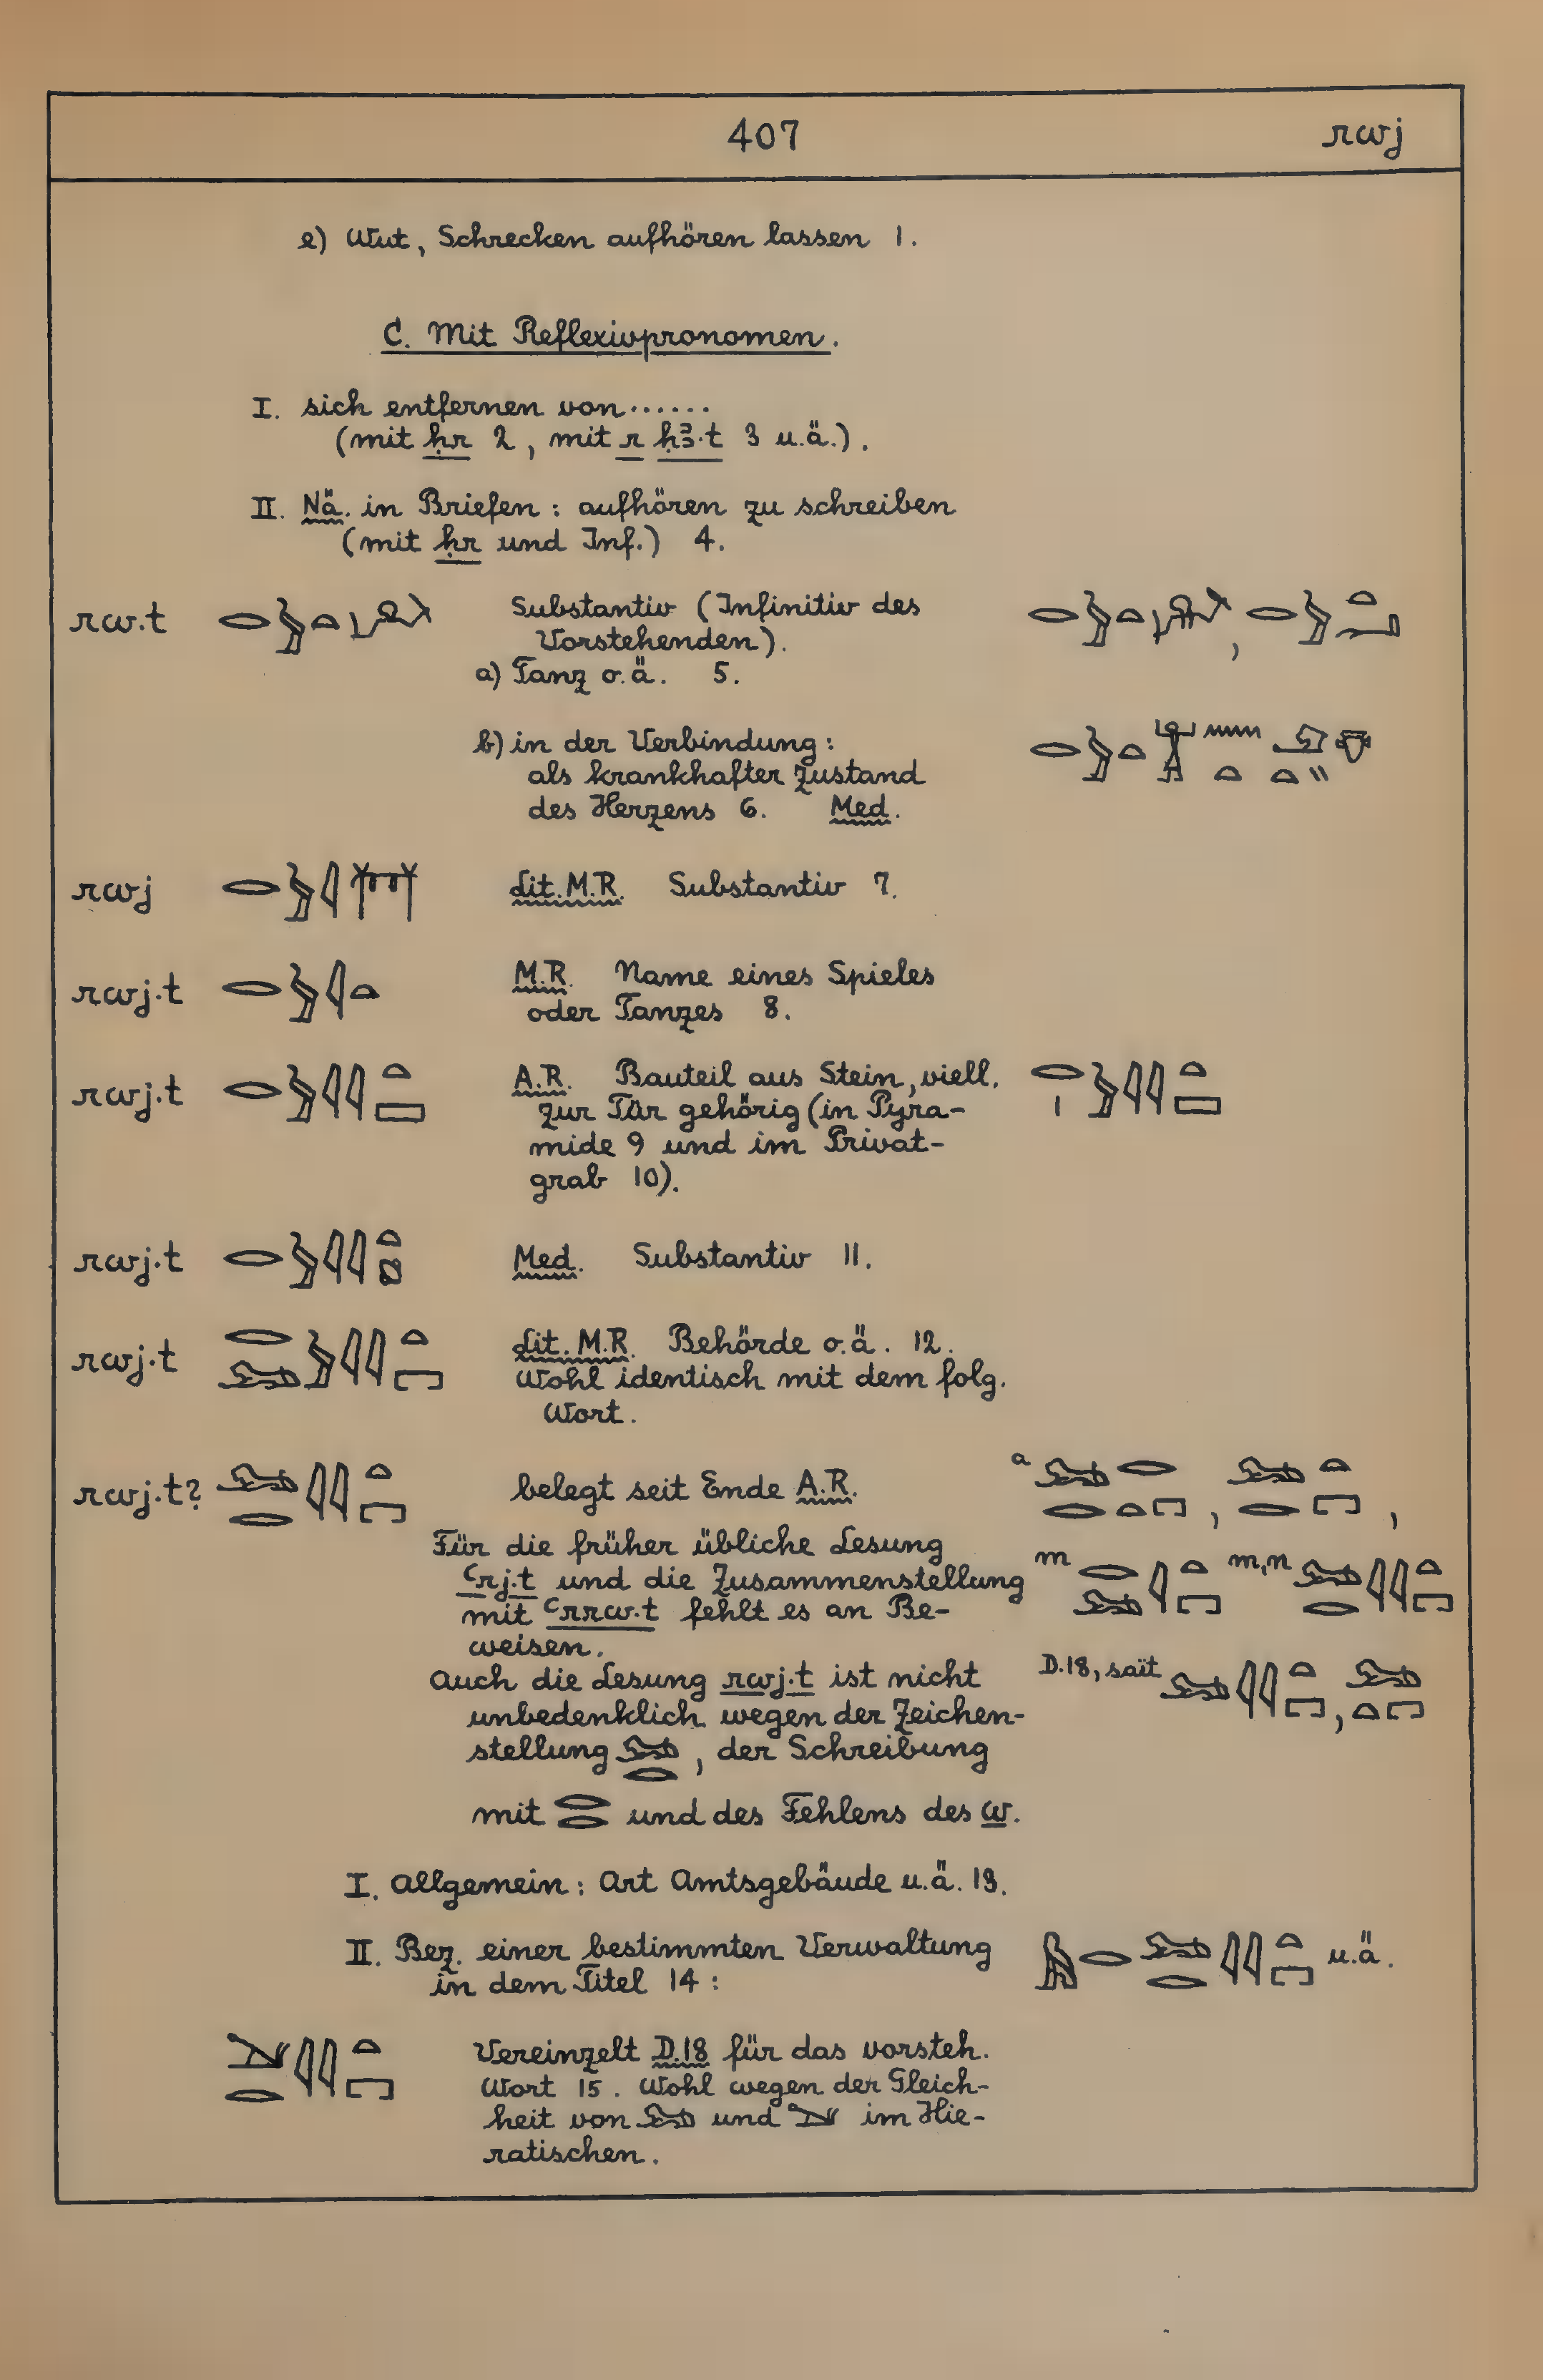 407 rwj
e) Wut, Schrecken aufhören lassen 1.
C. Mit Reflexivpronomen.
I. sich entfernen von......
(mit ḥr 2, mit r ḥꜣ·t 3 u.ä.).
II. Nä. in Briefen: aufhören zu schreiben
(mit ḥr und Inf.) 4.
rw.t Substantiv (Infinitiv des
Vorstehenden).
a) Tanz o.ä. 5.
b) in der Verbindung:
als krankhafter Zustand
des Herzens 6. Med.
rwj Lit. M.R. Substantiv 7.
rwj.t M.R. Name eines Spieles
oder Tanzes 8.
rwj.t A.R. Bauteil aus Stein, viell.
zur Tür gehörig (in Pyra-
mide 9 und im Privat-
grab 10).
rwj.t Med. Substantiv 11.
rwj.t Lit. M.R. Behörde o.ä. 12.
Wohl identisch mit dem folg.
Wort.
rwj.t? belegt seit Ende A.R. a
Für die früher übliche Lesung
ꜥrj.t und die Zusammenstellung m m,n
mit ꜥrrw.t fehlt es an Be-
weisen.
Auch die Lesung rwj.t ist nicht D.18, sait
unbedenklich wegen der Zeichen-
stellung , der Schreibung
mit und des Fehlens des w.
I. Allgemein: Art Amtsgebäude u.ä. 13.
II. Bez. einer bestimmten Verwaltung u.ä.
in dem Titel 14:
Vereinzelt D.18 für das vorsteh.
Wort 15. Wohl wegen der Gleich-
heit von und im Hie-
ratischen.